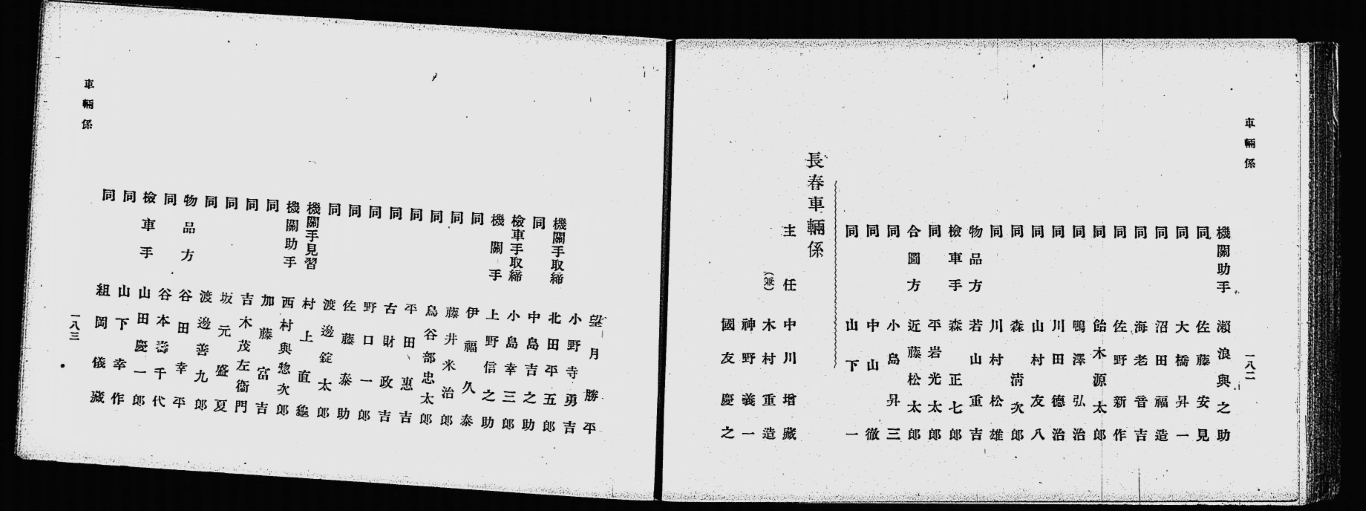 車輛係
一八二
機關助手 瀬浪與之助
同 佐藤安見
同 大橋昇一
同 沼田福造
同 海老音吉
同 佐野新作
同 飴木源太郎
同 鴨澤弘治
同 川田德治
同 山村友八
同 森淸次郎
同 川村松雄
物品方 若山重吉
檢車手 森正七郎
同 平岩光太郎
合圖方 近藤松太郎
同 小島昇三
同 中山徹
同 山下一
長春車輛係
主任 中川增藏
木村重造
神野義一
國友慶之
望月勝平
小野寺勇吉
機關手取締 北田平五郎
同 中島吉之助
檢車手取締 小島幸三郎
機關手 上野信之助
同 伊福久泰
同 藤井米治郎
同 鳥谷部忠太郎
同 平田惠吉
同 古財政吉
同 野口一郎
同 佐藤泰助
同 渡邊錠太郎
機關手見習 村上直
機關助手 西村與惣次郎
同 加藤富吉
同 吉木茂左衞門
同 坂元盛夏
同 渡邊善九郎
物品方 谷田幸平
同 谷本壽千代
檢車手 山田慶一郎
同 山下幸作
同 組岡儀藏
車輛係
一八三